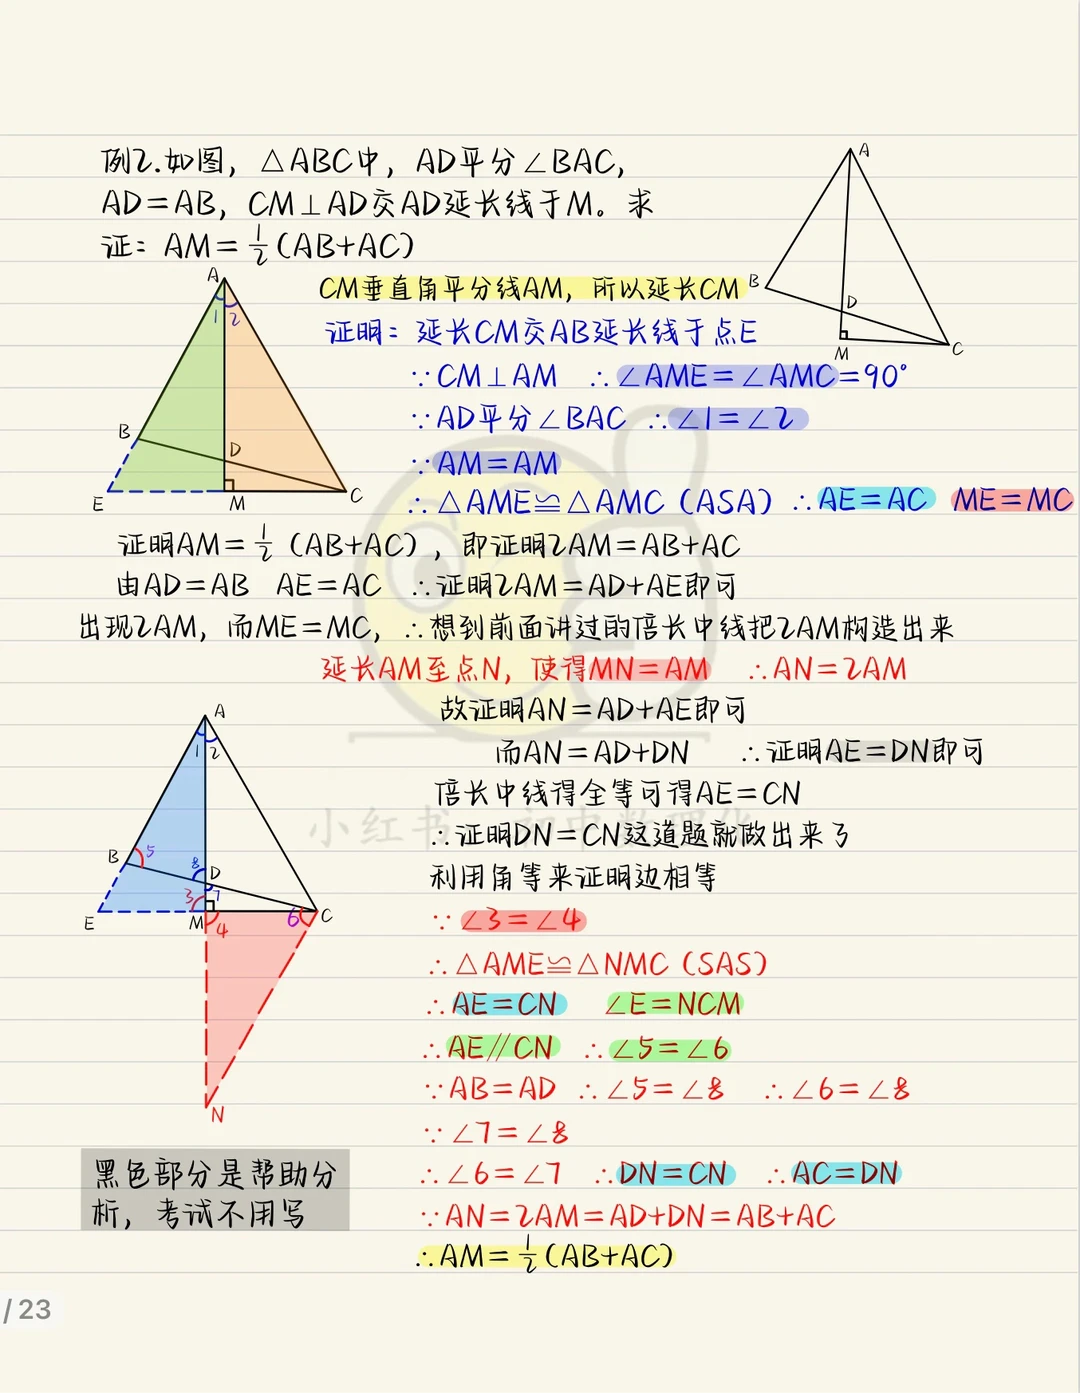 例2.如图，△ABC中，AD平分∠BAC，
AD=AB，CM⊥AD交AD延长线于M。求
证：AM=½(AB+AC)
A
B
D
M
C
CM垂直角平分线AM，所以延长CM
证明：延长CM交AB延长线于点E
∵CM⊥AM ∴∠AME=∠AMC=90°
∵AD平分∠BAC ∴∠1=∠2
∵AM=AM
∴△AME≌△AMC（ASA）∴AE=AC ME=MC
A
1 2
B
D
E
M
C
证明AM=½（AB+AC），即证明2AM=AB+AC
由AD=AB AE=AC ∴证明2AM=AD+AE即可
出现2AM，而ME=MC，∴想到前面讲过的倍长中线把2AM构造出来
延长AM至点N，使得MN=AM ∴AN=2AM
故证明AN=AD+AE即可
而AN=AD+DN ∴证明AE=DN即可
倍长中线得全等可得AE=CN
∴证明DN=CN这道题就做出来了
利用角等来证明边相等
∵∠3=∠4
∴△AME≌△NMC（SAS）
∴AE=CN ∠E=NCM
∴AE∥CN ∴∠5=∠6
∵AB=AD ∴∠5=∠8 ∴∠6=∠8
∵∠7=∠8
∴∠6=∠7 ∴DN=CN ∴AC=DN
∵AN=2AM=AD+DN=AB+AC
∴AM=½(AB+AC)
A
1 2
B 5
8 D
3 7
E
M 4
6 C
N
黑色部分是帮助分
析，考试不用写
小红书 初中数理化
/23